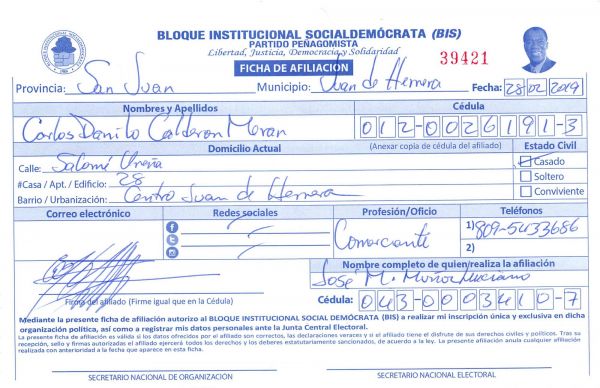 BLOQUE INSTITUCIONAL SOCIALDEMÓCRATA (BIS)
PARTIDO PEÑAGOMISTA
Libertad, Justicia, Democracia y Solidaridad
FICHA DE AFILIACIÓN
39421
Provincia: San Juan Municipio: Juan de Herrera Fecha: 28/02/2019
Nombres y Apellidos Cédula
Carlos Danilo Calderon Moran 012-0026191-3
Domicilio Actual (Anexar copia de cédula del afiliado) Estado Civil
Calle: Salomé Ureña Casado
#Casa / Apt. / Edificio: 28 Soltero
Barrio / Urbanización: Centro Juan de Herrera Conviviente
Correo electrónico Redes sociales Profesión/Oficio Teléfonos
Comerciante 1) 809-5433686
2)
Nombre completo de quien/realiza la afiliación
José M. Muñoz Luciano
Firma del afiliado (Firme igual que en la Cédula) Cédula: 043-0003410-7
Mediante la presente ficha de afiliación autorizo al BLOQUE INSTITUCIONAL SOCIAL DEMÓCRATA (BIS) a realizar mi inscripción única y exclusiva en dicha
organización política, así como a registrar mis datos personales ante la Junta Central Electoral.
La presente ficha de afiliación es válida si los datos ofrecidos por el afiliado son correctos, las declaraciones veraces y si el afiliado tiene el disfrute de sus derechos civiles y políticos. Tras su
recepción, sello y firmas autorizadas el afiliado ejercerá todos los derechos y los deberes estatutariamente sancionados, de acuerdo a la ley. La presente afiliación anula cualquier afiliación
realizada con anterioridad a la fecha que aparece en esta ficha.
SECRETARIO NACIONAL DE ORGANIZACIÓN SECRETARIO NACIONAL ELECTORAL